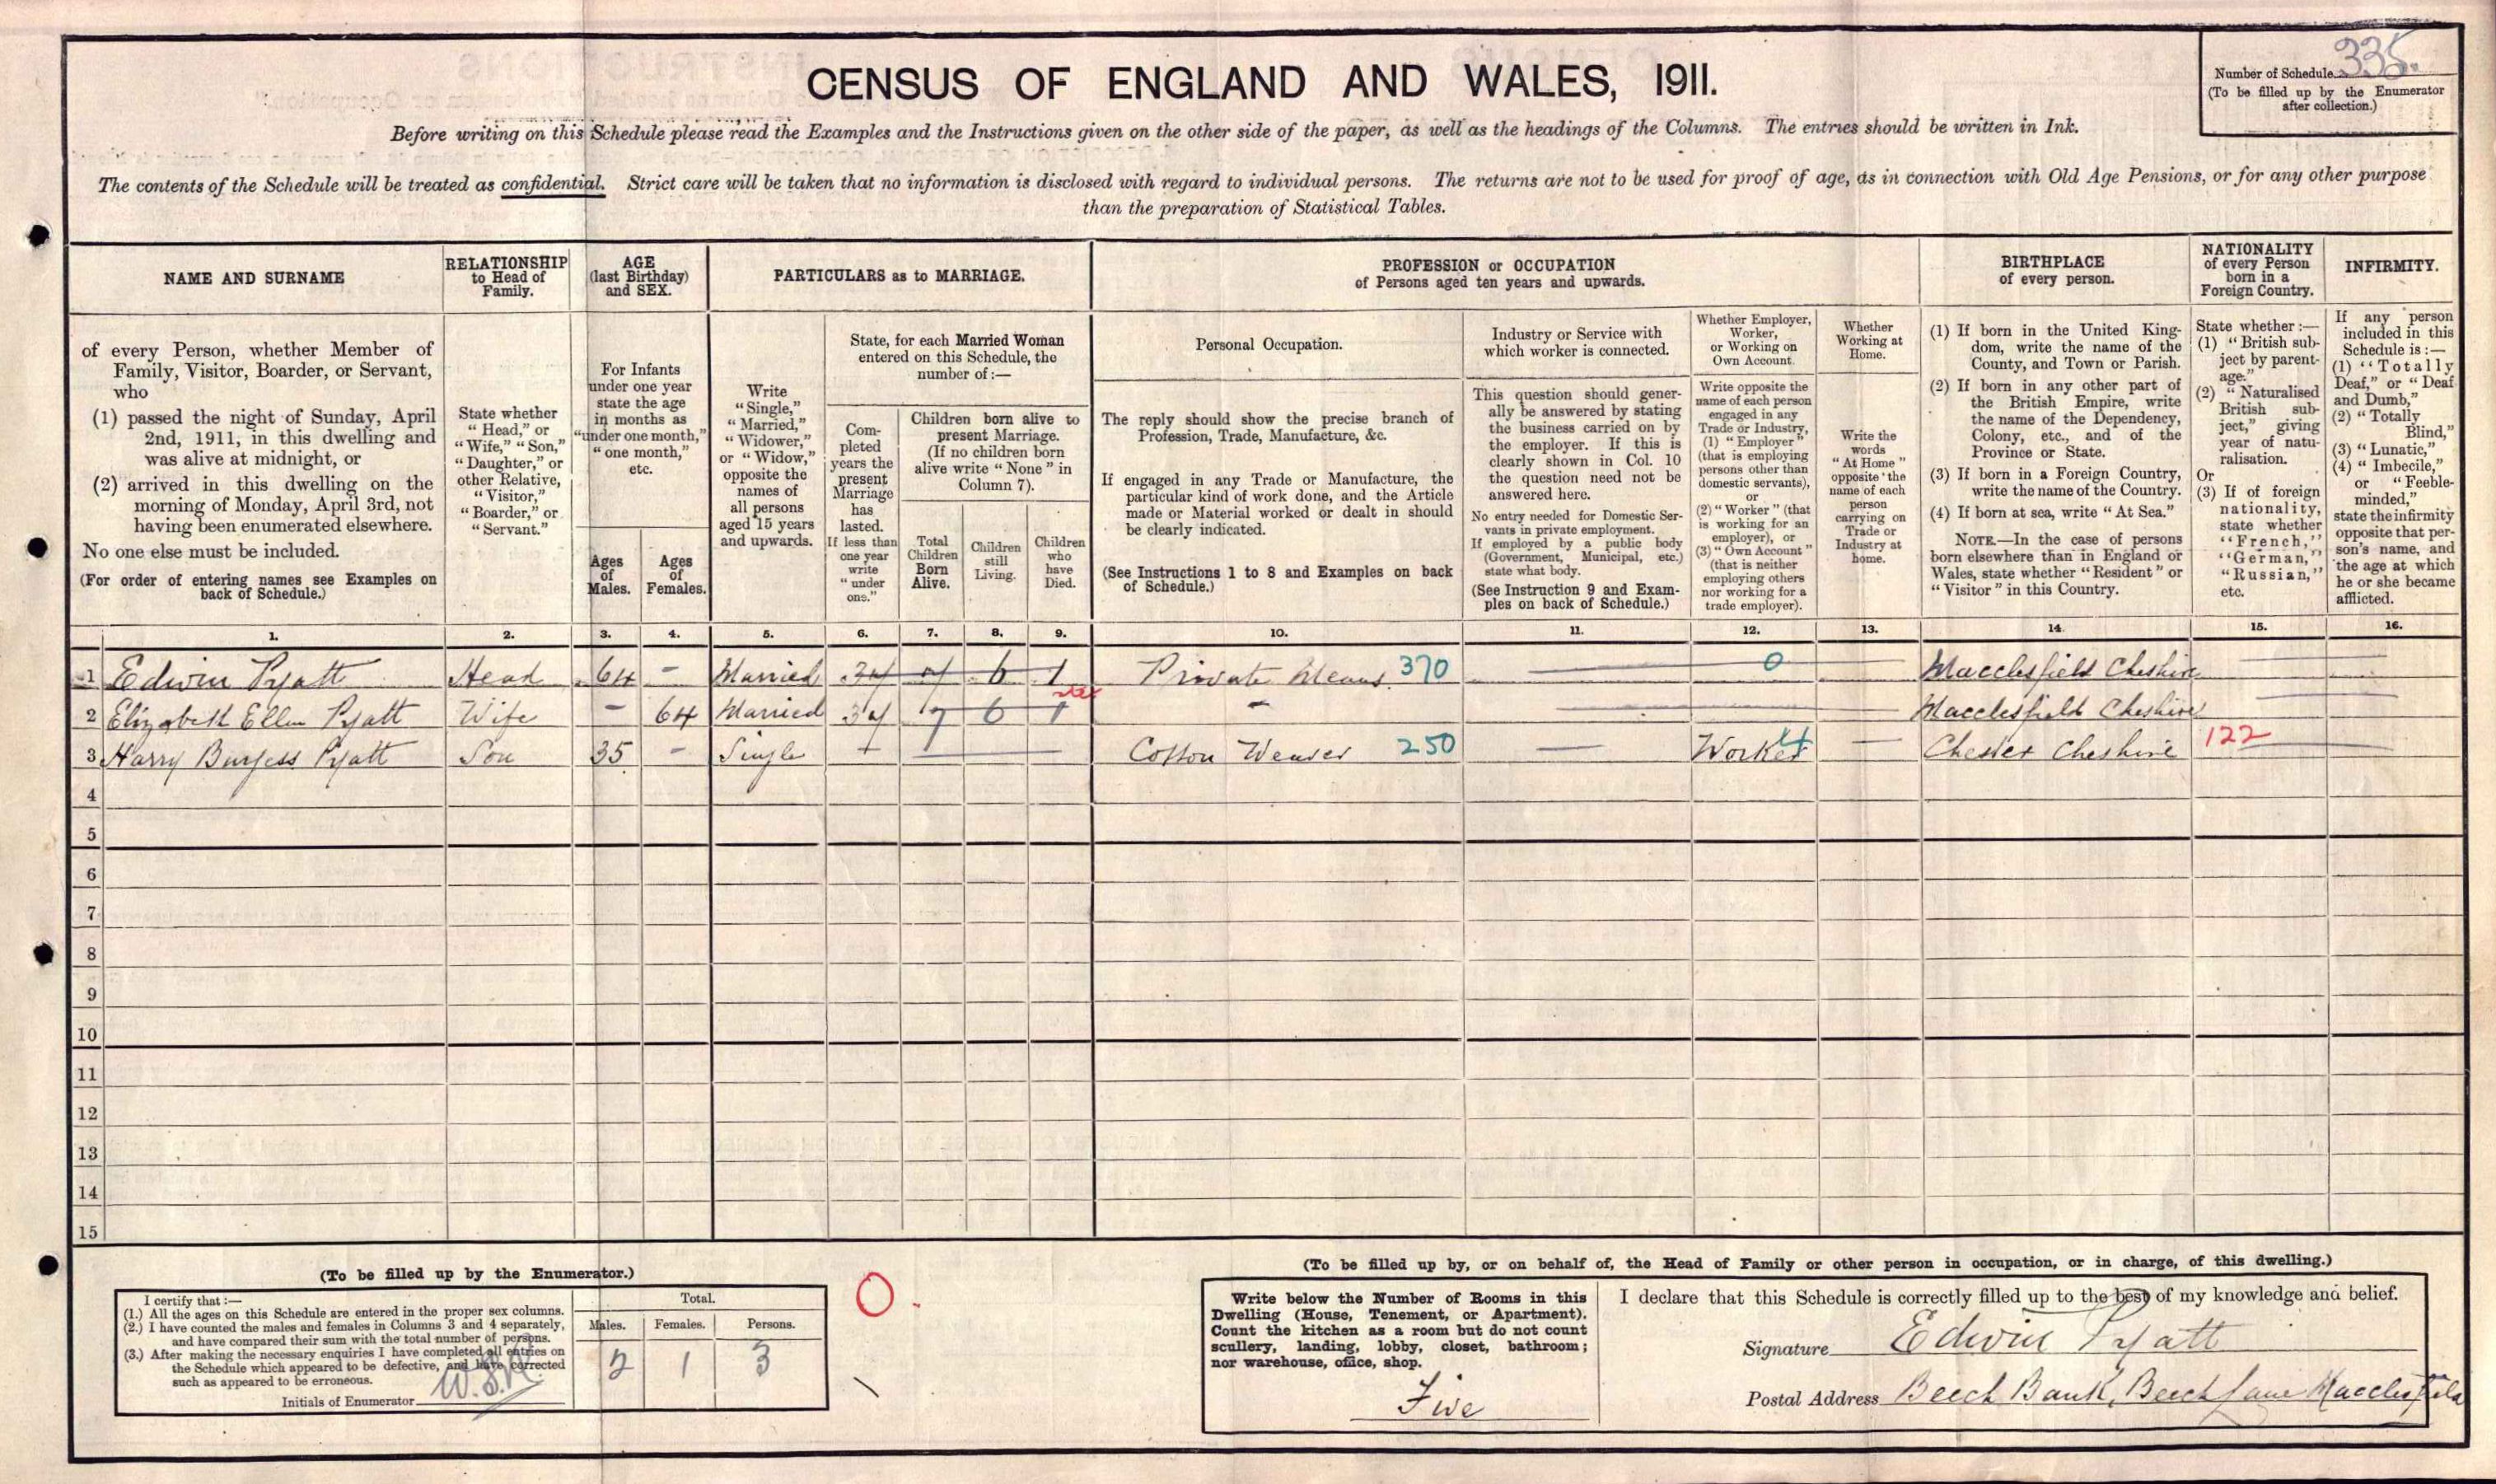 Number of Schedule 335.
(To be filled up by the Enumerator
after collection.)
CENSUS OF ENGLAND AND WALES, 1911.
Before writing on this Schedule please read the Examples and the Instructions given on the other side of the paper, as well as the headings of the Columns. The entries should be written in Ink.
The contents of the Schedule will be treated as confidential. Strict care will be taken that no information is disclosed with regard to individual persons. The returns are not to be used for proof of age, as in connection with Old Age Pensions, or for any other purpose
than the preparation of Statistical Tables.
NAME AND SURNAME
of every Person, whether Member of
Family, Visitor, Boarder, or Servant,
who
(1) passed the night of Sunday, April
2nd, 1911, in this dwelling and
was alive at midnight, or
(2) arrived in this dwelling on the
morning of Monday, April 3rd, not
having been enumerated elsewhere.
No one else must be included.
(For order of entering names see Examples on
back of Schedule.)
RELATIONSHIP
to Head of
Family.
State whether
"Head," or
"Wife," "Son,"
"Daughter," or
other Relative,
"Visitor,"
"Boarder," or
"Servant."
AGE
(last Birthday)
and SEX.
For Infants
under one year
state the age
in months as
"under one month,"
"one month,"
etc.
Ages
of
Males.
Ages
of
Females.
PARTICULARS as to MARRIAGE.
Write
"Single,"
"Married,"
"Widower,"
or "Widow,"
opposite the
names of
all persons
aged 15 years
and upwards.
State, for each Married Woman
entered on this Schedule, the
number of:—
Com-
pleted
years the
present
Marriage
has
lasted.
If less than
one year
write
"under
one."
Children born alive to
present Marriage.
(If no children born
alive write "None" in
Column 7).
Total
Children
Born
Alive.
Children
still
Living.
Children
who
have
Died.
PROFESSION or OCCUPATION
of Persons aged ten years and upwards.
Personal Occupation.
The reply should show the precise branch of
Profession, Trade, Manufacture, &c.
If engaged in any Trade or Manufacture, the
particular kind of work done, and the Article
made or Material worked or dealt in should
be clearly indicated.
(See Instructions 1 to 8 and Examples on back
of Schedule.)
Industry or Service with
which worker is connected.
This question should gener-
ally be answered by stating
the business carried on by
the employer. If this is
clearly shown in Col. 10
the question need not be
answered here.
No entry needed for Domestic Ser-
vants in private employment.
If employed by a public body
(Government, Municipal, etc.)
state what body.
(See Instruction 9 and Exam-
ples on back of Schedule.)
Whether Employer,
Worker,
or Working on
Own Account.
Write opposite the
name of each person
engaged in any
Trade or Industry,
(1) "Employer"
(that is employing
persons other than
domestic servants),
or
(2) "Worker" (that
is working for an
employer), or
(3) "Own Account"
(that is neither
employing others
nor working for a
trade employer).
Whether
Working at
Home.
Write the
words
"At Home"
opposite the
name of each
person
carrying on
Trade or
Industry at
home.
BIRTHPLACE
of every person.
(1) If born in the United King-
dom, write the name of the
County, and Town or Parish.
(2) If born in any other part of
the British Empire, write
the name of the Dependency,
Colony, etc., and of the
Province or State.
(3) If born in a Foreign Country,
write the name of the Country.
(4) If born at sea, write "At Sea."
NOTE.—In the case of persons
born elsewhere than in England or
Wales, state whether "Resident" or
"Visitor" in this Country.
NATIONALITY
of every Person
born in a
Foreign Country.
State whether:—
(1) "British sub-
ject by parent-
age."
(2) "Naturalised
British sub-
ject," giving
year of natu-
ralisation.
Or
(3) If of foreign
nationality,
state whether
"French,"
"German,"
"Russian,"
etc.
INFIRMITY.
If any person
included in this
Schedule is:—
(1) "Totally
Deaf," or "Deaf
and Dumb,"
(2) "Totally
Blind,"
(3) "Lunatic,"
(4) "Imbecile,"
or "Feeble-
minded,"
state the infirmity
opposite that per-
son's name, and
the age at which
he or she became
afflicted.
1. 2. 3. 4. 5. 6. 7. 8. 9. 10. 11. 12. 13. 14. 15. 16.
1 Edwin Pyatt Head 64 - Married 34 7 6 1 Private Means 370 0 Macclesfield Cheshire
2 Elizabeth Ellen Pyatt Wife - 64 Married 34 7 6 1 - Macclesfield Cheshire
3 Harry Burgess Pyatt Son 35 - Single Cotton Weaver 250 Worker 4 Chester Cheshire 122
4
5
6
7
8
9
10
11
12
13
14
15
(To be filled up by the Enumerator.)
I certify that:—
(1.) All the ages on this Schedule are entered in the proper sex columns.
(2.) I have counted the males and females in Columns 3 and 4 separately,
and have compared their sum with the total number of persons.
(3.) After making the necessary enquiries I have completed all entries on
the Schedule which appeared to be defective, and have corrected
such as appeared to be erroneous.
Initials of Enumerator
Total.
Males. Females. Persons.
2 1 3
O.
(To be filled up by, or on behalf of, the Head of Family or other person in occupation, or in charge, of this dwelling.)
Write below the Number of Rooms in this
Dwelling (House, Tenement, or Apartment).
Count the kitchen as a room but do not count
scullery, landing, lobby, closet, bathroom;
nor warehouse, office, shop.
Five
I declare that this Schedule is correctly filled up to the best of my knowledge and belief.
Signature Edwin Pyatt
Postal Address Beech Bank, Beech Lane Macclesfield